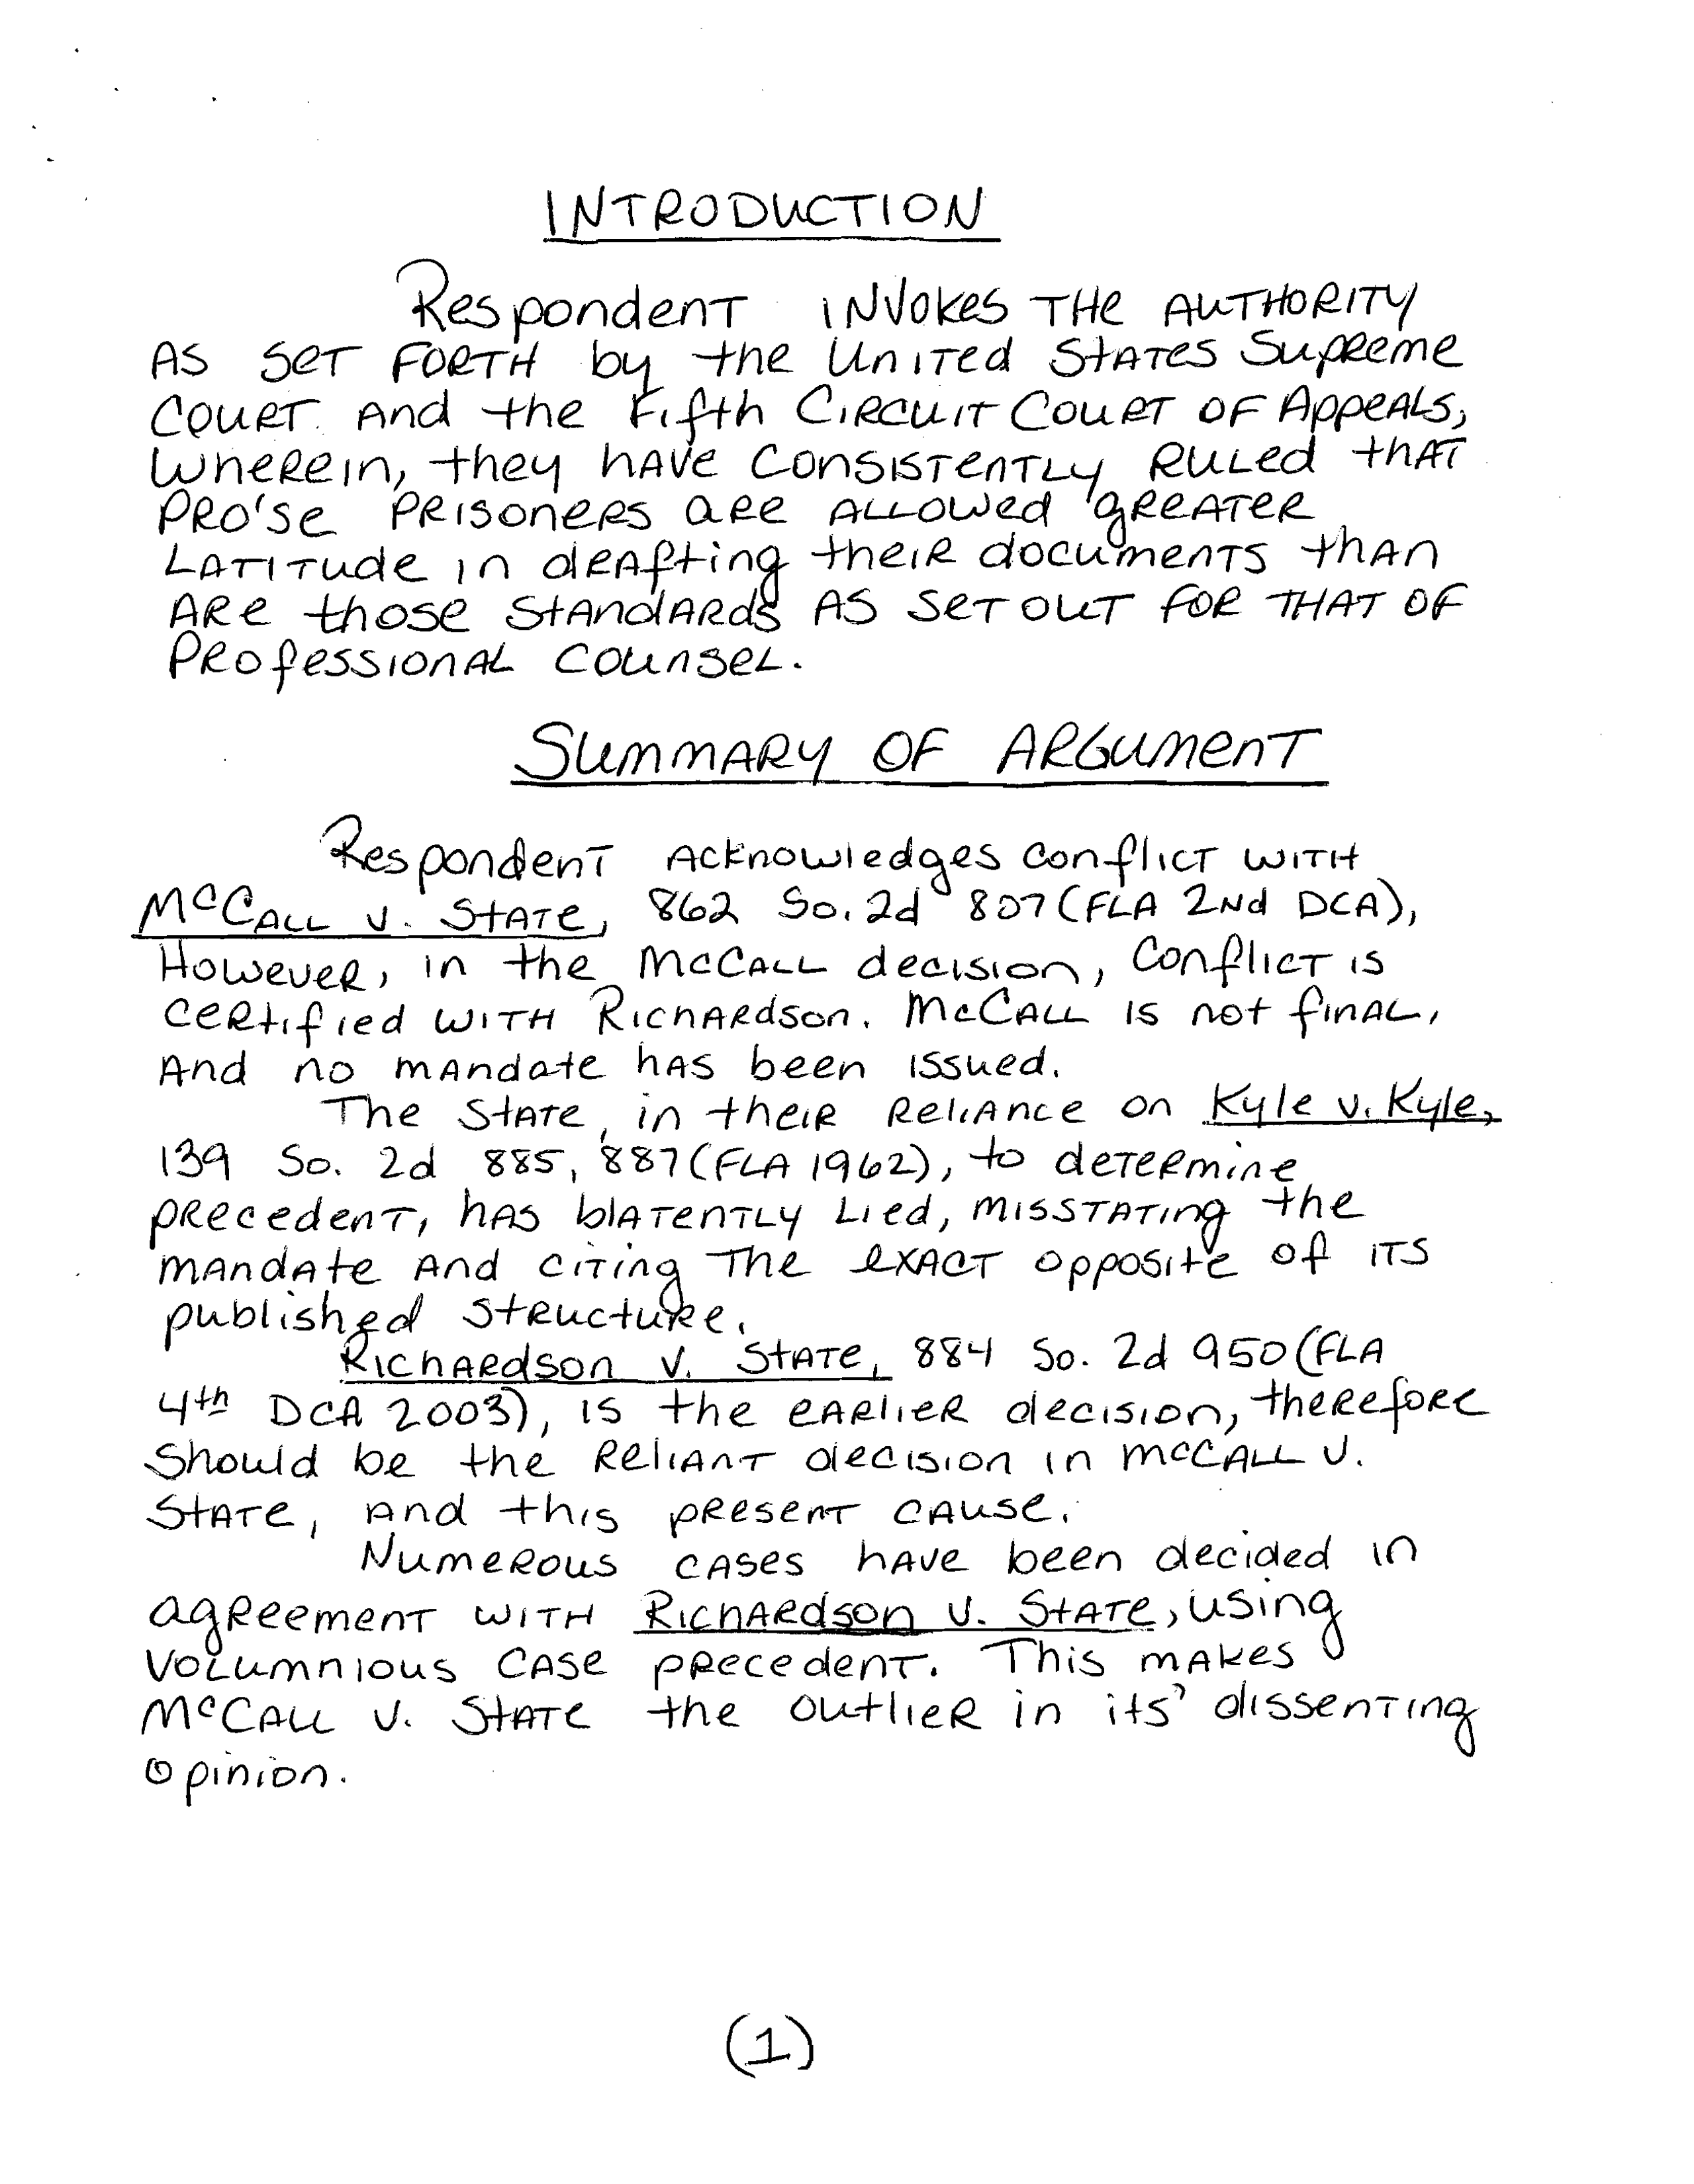 INTRODUCTION
Respondent invokes the authority
as set forth by the United States Supreme
Court and the Fifth Circuit Court of Appeals,
wherein, they have consistently ruled that
pro'se prisoners are allowed greater
latitude in drafting their documents than
are those standards as set out for that of
professional counsel.
SUMMARY OF ARGUMENT
Respondent acknowledges conflict with
McCall v. State, 862 So. 2d 807 (FLA 2nd DCA),
However, in the McCall decision, conflict is
certified with Richardson. McCall is not final,
and no mandate has been issued.
The State, in their reliance on Kyle v. Kyle,
139 So. 2d 885, 887 (FLA 1962), to determine
precedent, has blatently lied, misstating the
mandate and citing the exact opposite of its
published structure.
Richardson v. State, 884 So. 2d 950 (FLA
4th DCA 2003), is the earlier decision, therefore
should be the reliant decision in McCall v.
State, and this present cause.
Numerous cases have been decided in
agreement with Richardson v. State, using
volumnious case precedent. This makes
McCall v. State the outlier in its' dissenting
opinion.
(1)